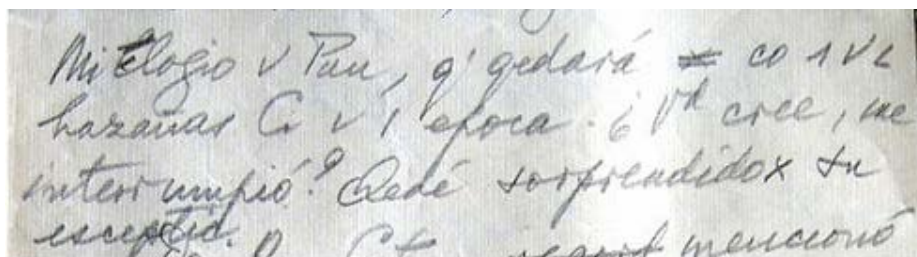 Mi Elogio v Pau, q' qedará = co 1 v L
hazañas C v 1 época. ¿Vd cree, me
interrumpió? Qedé sorprendido x su
esceptic.
mencionó